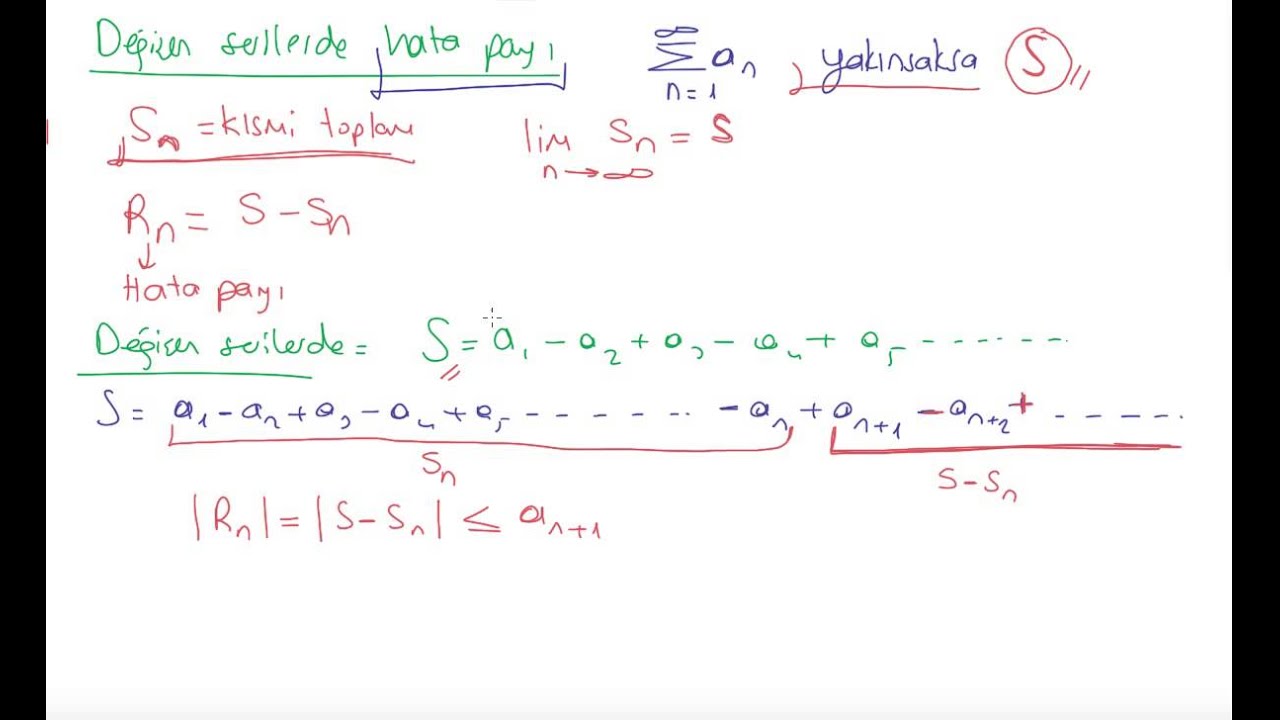 Değişen serilerde hata payı
∞ Σ n=1 aₙ, yakınsaksa S
Sₙ = kısmi toplam
lim n→∞ Sₙ = S
Rₙ = S – Sₙ
↓
Hata payı
Değişen serilerde = S = a₁ – a₂ + a₃ – a₄ + a₅ - - - - - -
S = a₁ – aₙ + a₃ – a₄ + a₅ - - - - - - – aₙ + aₙ₊₁ – aₙ₊₂ + - - - -
Sₙ
S – Sₙ
|Rₙ| = |S – Sₙ| ≤ aₙ₊₁